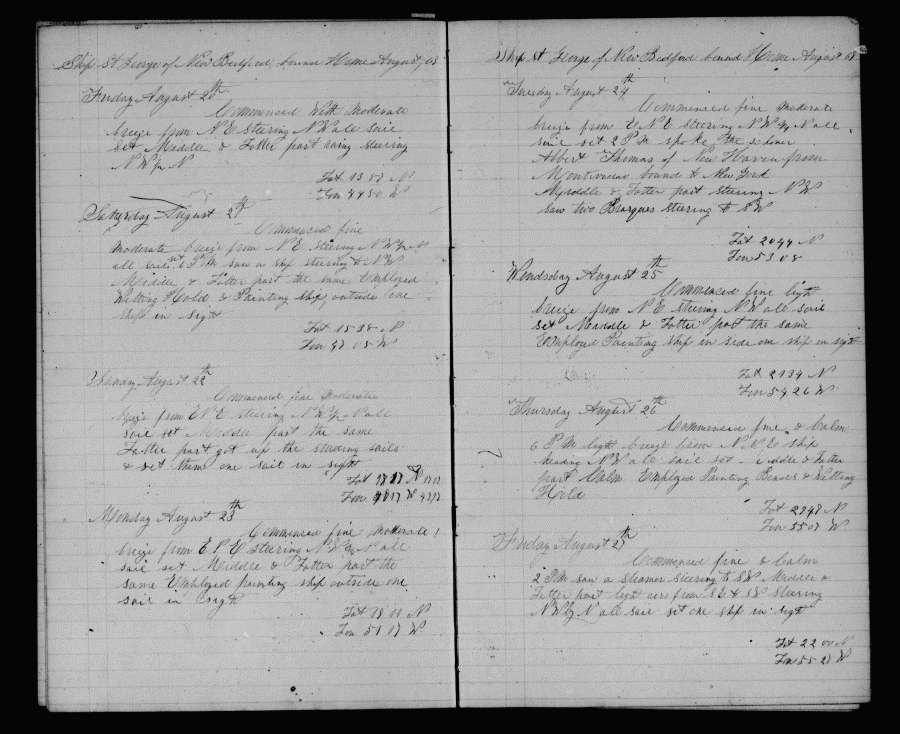 Ship St George of New Bedford bound Home August, 68
Friday August 20th
Commenced With moderate
breeze from N E steering N W all sail
set Middle & Latter part rainy steering
N W by N
Lat 13 57 N
Lon 44 50 W
Saturday August 21st
Commenced fine
moderate breeze from N E steering N W by N
all sail set 6 P M saw a ship steering to N W
Middle & Latter part the same Employed
Wetting Hold & Painting ship outside one
ship in sight
Lat 15 38 N
Lon 47 05 W
Sunday August 22
Commenced fine moderate
breeze from E N E steering N W by N all
sail set Middle part the same
Latter part got up the studing sails
& set them one sail in sight
Lat 17 17 N
Lon W
Monday August 23th
Commenced fine moderate
breeze from E N E steering N W by N all
sail set Middle & Latter part the
same Employed Painting ship outside one
sail in sight
Lat 18 N
Lon 51 17 W
Ship St George of New Bedford bound Home August 68
Tuesday August 24th
Commenced fine moderate
breeze from E N E steering N W by N all
sail set 2 P M spoke the schoner
Albert Thomas of New Haven from
Montivideo bound to New York
Myddle & Latter part steering N W
saw two Barques steering to S W
Lat 20 44 N
Lon 53 08
Wendsday August 25th
Commenced fine light
breeze from N E steering N W all sail
set Middle & Latter part the same
Employed Painting ship in side one ship in sigth
Lat 21 34 N
Lon 54 26 W
Thursday August 26th
Commenced fine & Calm
6 P M light breeze from N N E ship
heading N W all sail set Middle & Latter
part Calm Employed Painting & Wetting
Hold
Lat 21 47 N
Lon 55 07 W
Friday August 27th
Commenced fine & Calm
2 P M saw a steamer steering to S W Middle &
Latter part light airs from S E & S W steering
N W by N all sail set one ship in sigth
Lat 22 00 N
Lon 55 27 W